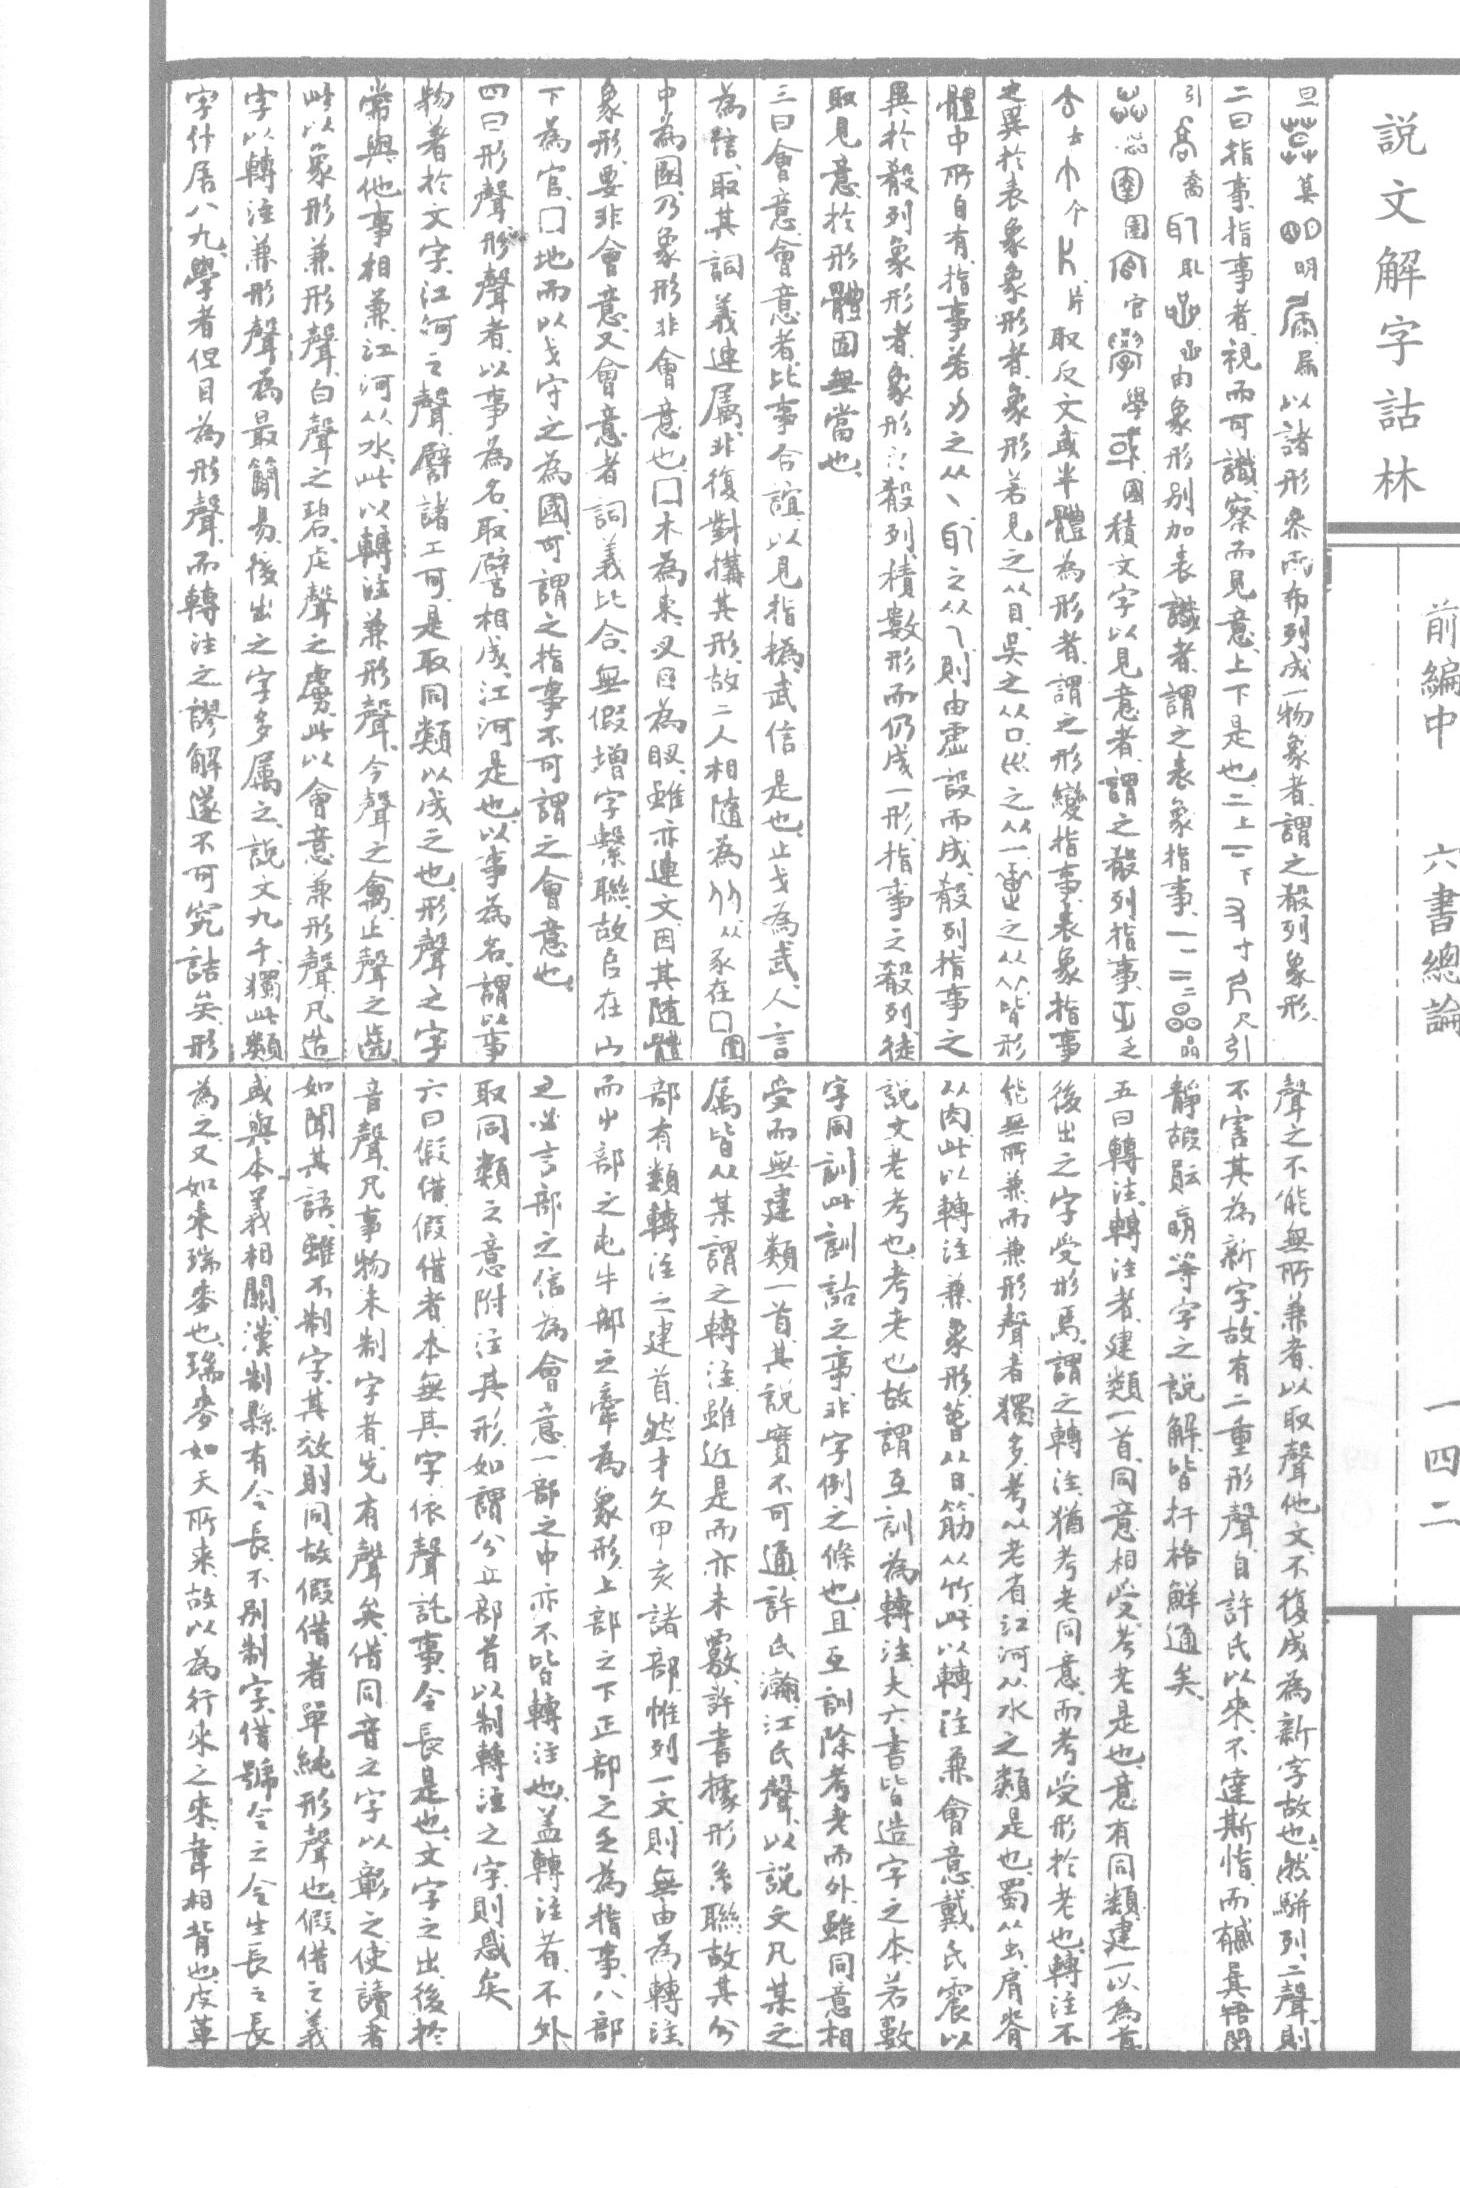 説文解字詁林
前編中　六書總論　一四二
旦莫明屚以諸形參兩布列成一物象者謂之殽列象形
二曰指事指事者視而可識察而見意上下是也二上二下寸尺引
引喬㠯由象形別加表識者謂之表象指事一一二二晶
圂官學或國積文字以見意者謂之殽列指事乏
去个片取反文或半體為形者謂之形變指事表象指事
之異於表象象形者象形若見之从目吳之从口之从一之从从皆形
體中所自有指事若刃之从丶之从乀則由虛設而成殽列指事之
異於殽列象形者象形之殽列積數形而仍成一形指事之殽列徒
取見意於形體固無當也
三曰會意會意者比事合誼以見指撝武信是也止戈為武人言
為信取其詞義連屬非復對構其形故二人相隨為从豕在囗
中為圂乃象形非會意也囗木為束㕛目為䀏雖亦連文因其隨體
象形要非會意又會意者詞義比合無假增字繫聯故𠂤在宀
下為官囗地而以戈守之為國可謂之指事不可謂之會意也
四曰形聲形聲者以事為名取譬相成江河是也以事為名謂以事
物著於文字江河之聲譬諸工可是取同類以成之也形聲之字
常與他事相兼江河从水此以轉注兼形聲今聲之禽止聲之齒
此以象形兼形聲白聲之碧虍聲之虜此以會意兼形聲凡造
字以轉注兼形聲為最簡易後出之字多屬之說文九千獨此類
字什居八九學者但目為形聲而轉注之謬解遂不可究詰矣形
聲之不能無所兼者以取聲他文不復成為新字故也然駢列二聲則
不害其為新字故有二重形聲自許氏以來不達斯恉而
靜嘏等字之說解皆扞格鮮通矣
五曰轉注轉注者建類一首同意相受考老是也意有同類建一以為首
後出之字受形焉謂之轉注猶考老同意而考受形於老也轉注不
能無所兼而兼形聲者獨多考从老省江河从水之類是也蜀从虫肩脊
从肉此以轉注兼象形莒从日筋从竹此以轉注兼會意戴氏震以
說文老考也考老也故謂互訓為轉注夫六書皆造字之本若數
字同訓此訓詁之事非字例之條也且互訓除考老而外雖同意相
受而無建類一首其說實不可通許氏瀚江氏聲以說文凡某之
屬皆从某謂之轉注雖近是而亦未覈許書據形系聯故其分
部有類轉注之建首然才久甲亥諸部惟列一文則無由為轉注
而屮部之屯牛部之牽為象形上部之下正部之乏為指事八部
之必言部之信為會意一部之中亦不皆轉注也蓋轉注者不外
取同類之意附注其形如謂分立部首以制轉注之字則惑矣
六曰假借假借者本無其字依聲託事令長是也文字之出後於
音聲凡事物未制字者先有聲矣借同音之字以彰之使讀者
如聞其語雖不制字其效則同故假借者單純形聲也假借之義
或與本義相關漢制縣有令長不別制字借號令之令生長之長
為之又如來瑞麥也瑞麥如天所來故以為行來之來韋相背也皮革